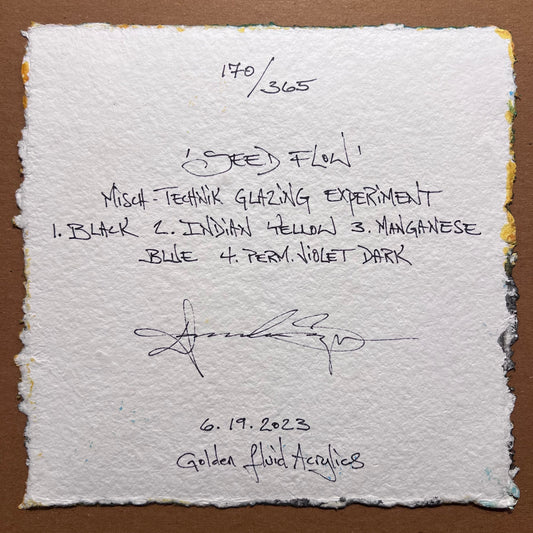 170/365
'SEED FLOW'
MISCH-TECHNIK GLAZING EXPERIMENT
1. BLACK 2. INDIAN YELLOW 3. MANGANESE
BLUE 4. PERM. VIOLET DARK
6.19.2023
Golden fluid Acrylics